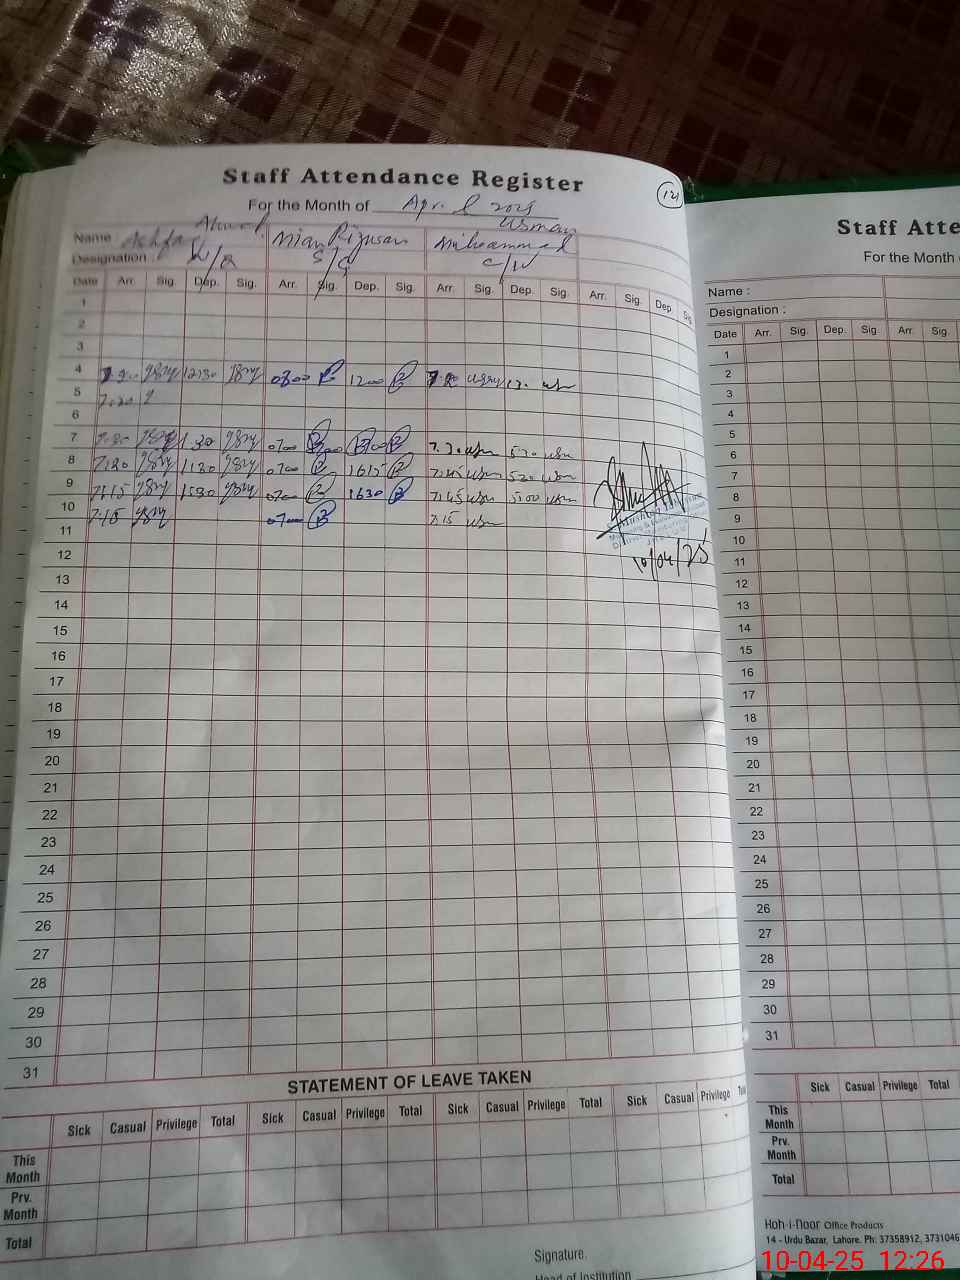 Staff Attendance Register
121
For the Month of April 2025
Name Ashfaq Ahmad Mian Rizwan Muhammad Usman
Designation S/G C/W
Date Arr. Sig. Dep. Sig. Arr. Sig. Dep. Sig. Arr. Sig. Dep. Sig. Arr. Sig. Dep. Sig.
1
2
3
4 12:30 0800 1200
5 7:20
6
7 1:30 0700 7.30 usm 5:30 usm
8 7:20 1:30 0700 1615 7:45 usm 520 usm
9 7:15 1:30 0700 1630 7:45 usm 5:00 usm
10 7:15 0700 7:15 usm
10/04/25
11
12
13
14
15
16
17
18
19
20
21
22
23
24
25
26
27
28
29
30
31
STATEMENT OF LEAVE TAKEN
Sick Casual Privilege Total Sick Casual Privilege Total Sick Casual Privilege Total Sick Casual Privilege
This Month
Prv. Month
Total
Signature.
Head of Institution
Staff Atte
For the Month
Name :
Designation :
Date Arr. Sig. Dep. Sig Arr. Sig.
1
2
3
4
5
6
7
8
9
10
11
12
13
14
15
16
17
18
19
20
21
22
23
24
25
26
27
28
29
30
31
Sick Casual Privilege Total
This Month
Prv. Month
Total
Hoh-i-noor Office Products
14 - Urdu Bazar, Lahore. Ph: 37358912, 3731046
10-04-25 12:26